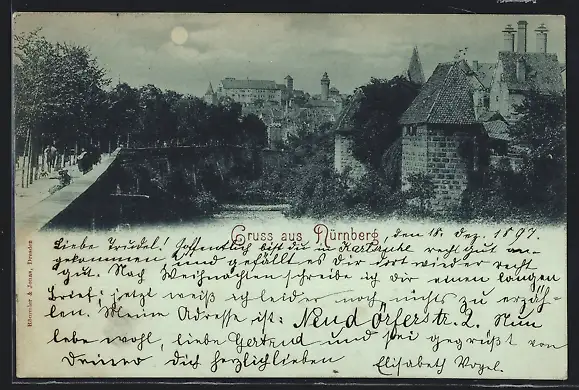 Gruss aus Nürnberg
den 18. Dez. 1897.
Liebe Trudel! Hoffentlich bist du in Karlsruhe recht gut an-
gekommen und gefällt es dir dort wieder recht
gut. Nach Weihnachten schreibe ich dir einen langen
Brief; jetzt weiß ich leider noch nichts zu erzäh-
len. Meine Adresse ist: Neudörferstr. 2. Nun
lebe wohl, liebe Gertrud und sei gegrüßt von
Deiner dich herzlich liebenden
Elisabeth Vogel.
Räumler & Jonas, Dresden